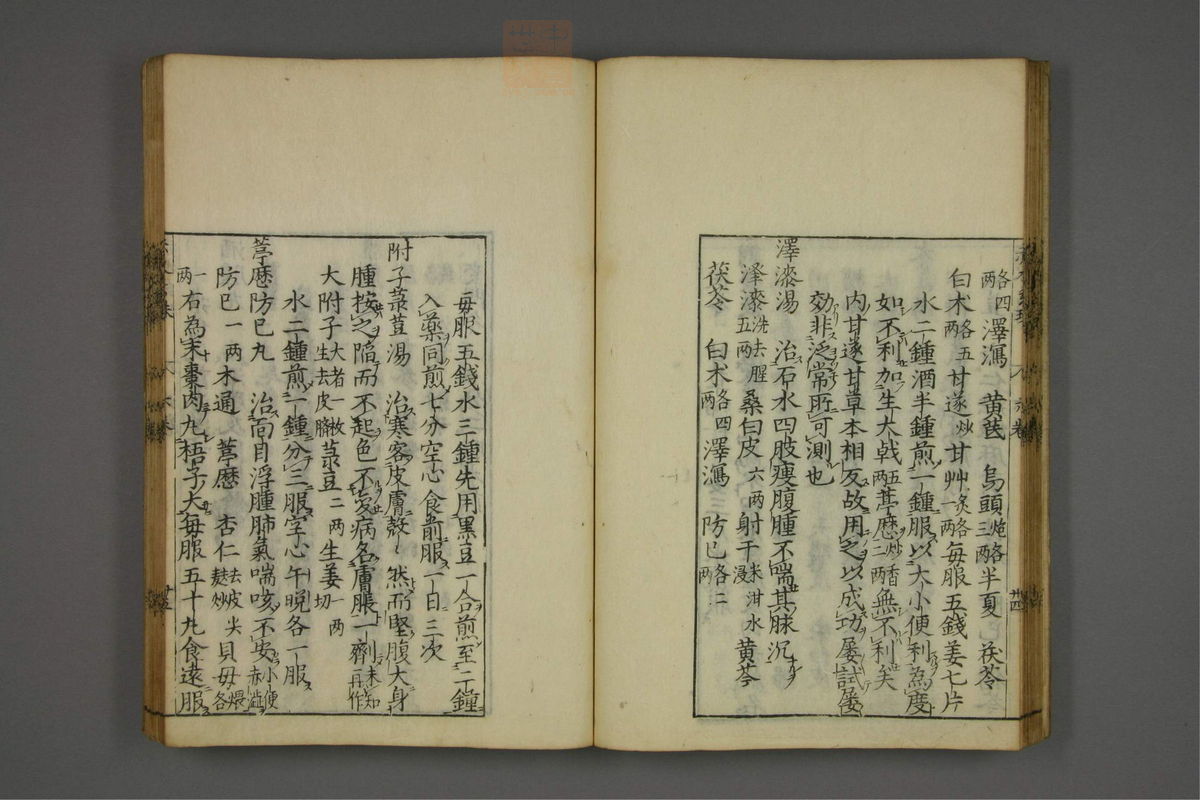 各四两澤瀉 黄芪 烏頭炮各三两半夏 茯苓
白术各五两甘遂炒甘艸炙各一两毎服五錢姜七片
水二鍾酒半鍾煎一鍾服以大小便利為度
如不利加生大戟五两葶歴炒二两香無不利矣
内甘遂甘草本相反故用之以成功屡試屡
効非泛常所可測也
澤漆湯 治石水四肢瘦腹腫不喘其脉沉
澤漆洗去腥五两桑白皮六两射干米泔水浸黄芩
茯苓 白术各四两澤瀉 防已各二两
毎服五錢水三鍾先用黒豆一合煎至二鍾
入藥同煎七分空心食前服一日三次
附子菉荳湯 治寒客皮膚殼〻然而堅腹大身
腫按之陷而不起色不変病名膚脹一劑未知再作
大附子大者一枚生去皮臍菉豆二两生姜一两切
水二鍾煎一鍾分三服空心午晩各一服
葶歴防已丸 治面目浮腫肺氣喘咳不安小便赤澁
防已一两木通 葶歴 杏仁去皮尖麩炒貝母煨各
一两右為末棗肉丸梧子大毎服五十丸食遠服